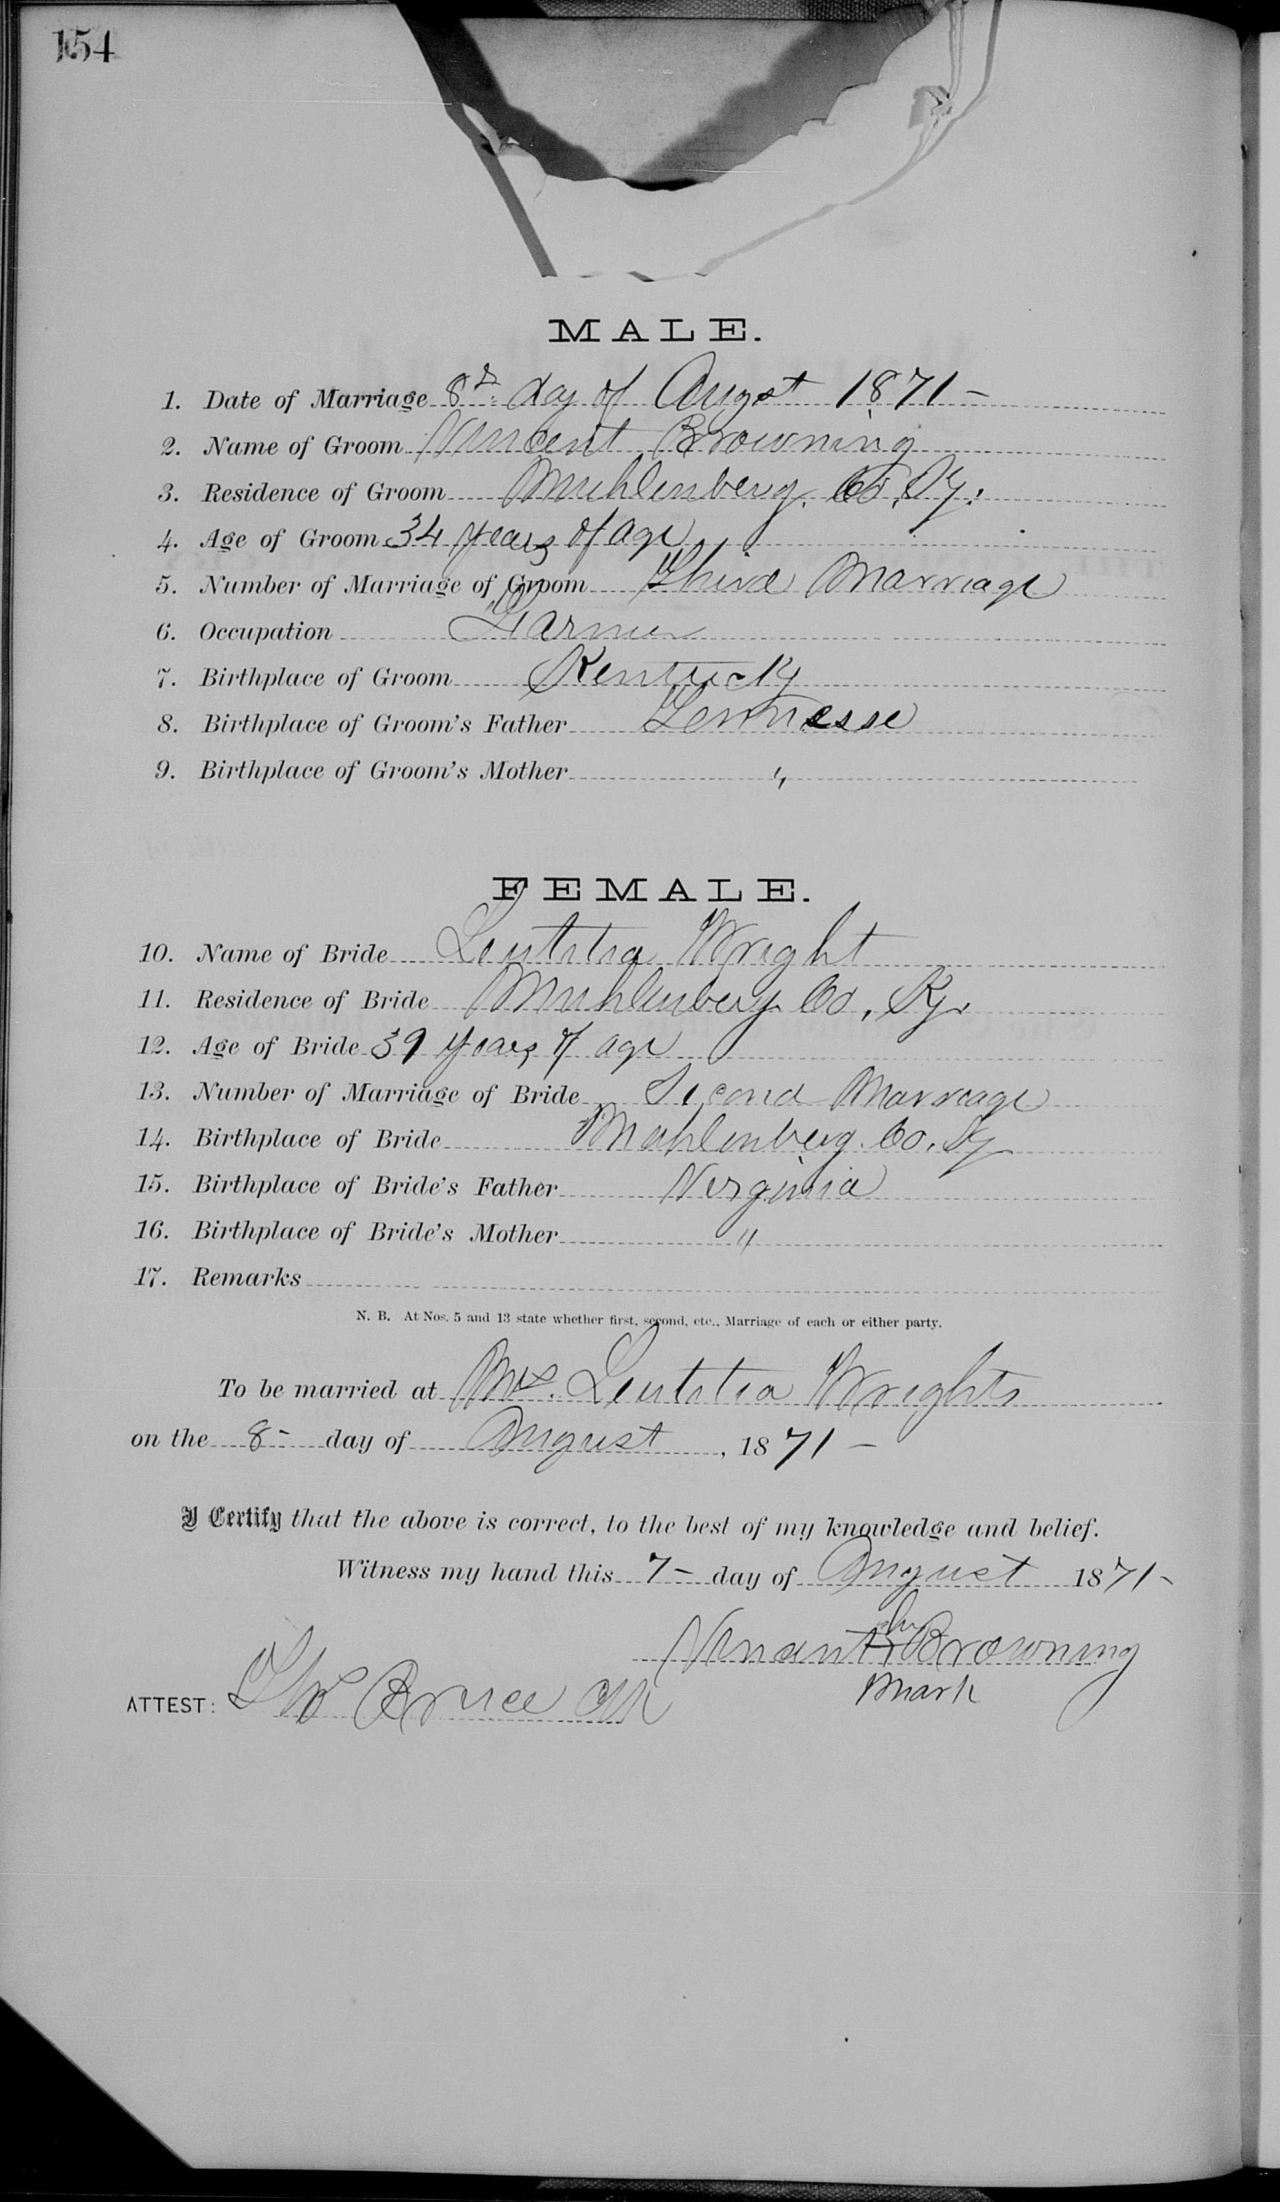 154
MALE.
1. Date of Marriage 8th day of Augst 1871 -
2. Name of Groom Vincent Browning
3. Residence of Groom Muhlenberg. Co, Ky.
4. Age of Groom 34 years of age
5. Number of Marriage of Groom Third Marriage
6. Occupation Farmer
7. Birthplace of Groom Kentucky
8. Birthplace of Groom's Father Tennesse
9. Birthplace of Groom's Mother "
FEMALE.
10. Name of Bride Leutitia Wright
11. Residence of Bride Muhlenberg Co, Ky.
12. Age of Bride 39 years of age
13. Number of Marriage of Bride Second Marriage
14. Birthplace of Bride Muhlenberg. Co. Ky
15. Birthplace of Bride's Father Virginia
16. Birthplace of Bride's Mother "
17. Remarks
N. B. At Nos. 5 and 13 state whether first, second, etc., Marriage of each or either party.
To be married at Mrs. Leutitia Wrights
on the 8- day of August, 1871 -
I Certify that the above is correct, to the best of my knowledge and belief.
Witness my hand this 7- day of August 1871-
his
Vincent x Browning
mark
ATTEST: Tho Bruce Clk